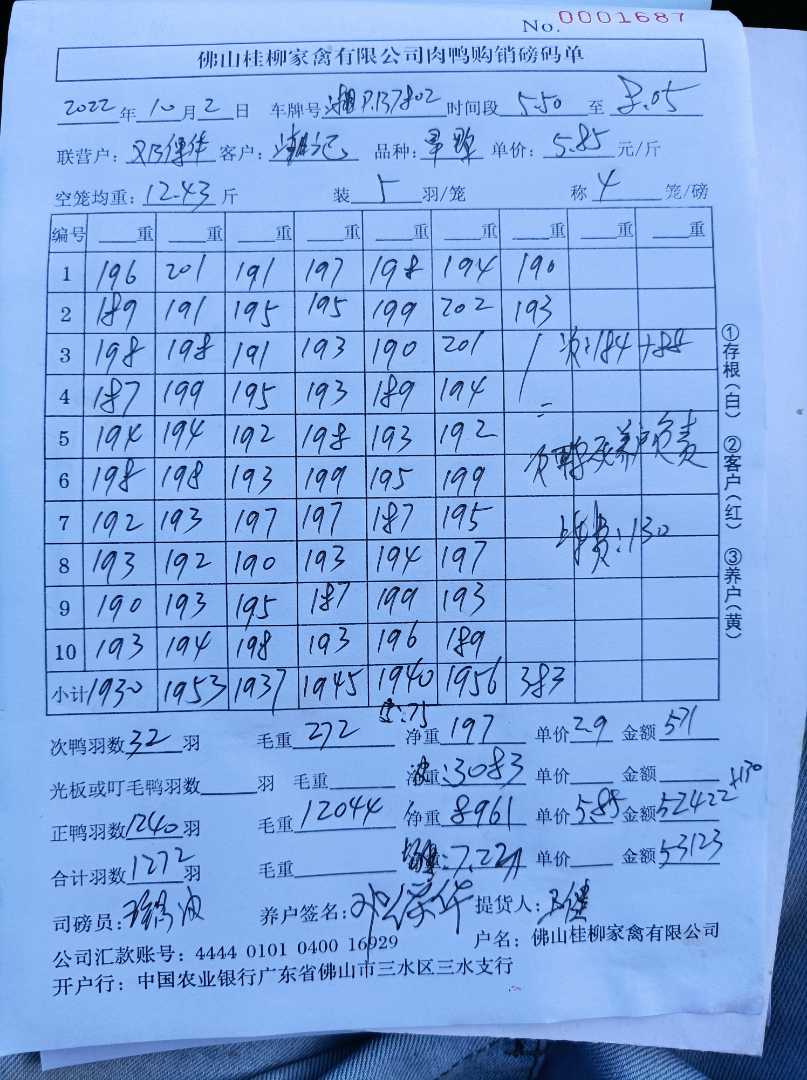 No. 0001687
佛山桂柳家禽有限公司肉鸭购销磅码单
2022 年 10 月 2 日 车牌号 湘P.B7802 时间段 5.50 至 8.05
联营户: 客户: 品种: 单价: 5.85 元/斤
空笼均重: 12.43 斤 装 5 羽/笼 称 4 笼/磅
编号 重 重 重 重 重 重 重 重 重
1 196 201 191 197 198 194 190
2 189 191 195 195 199 202 193
3 198 198 191 193 190 201 次:184 +88
4 187 199 195 193 189 194
5 194 194 192 198 193 192
养户负责
6 198 198 193 199 195 199
7 192 193 197 197 187 195
费:130
8 193 192 190 193 194 197
9 190 193 195 187 199 193
10 193 194 198 193 196 189
小计 1930 1953 1937 1945 1940 1956 383
①存根(白) ②客户(红) ③养户(黄)
次鸭羽数 32 羽 毛重 272 净重 197 单价 2.9 金额 571
光板或叮毛鸭羽数 羽 毛重 净重 :3083 单价 金额
+130
正鸭羽数 1240 羽 毛重 12044 净重 8961 单价 5.85 金额 52422
合计羽数 1272 羽 毛重 :7.22斤 单价 金额 53123
司磅员: 养户签名: 提货人:
公司汇款账号: 4444 0101 0400 16929 户名: 佛山桂柳家禽有限公司
开户行: 中国农业银行广东省佛山市三水区三水支行